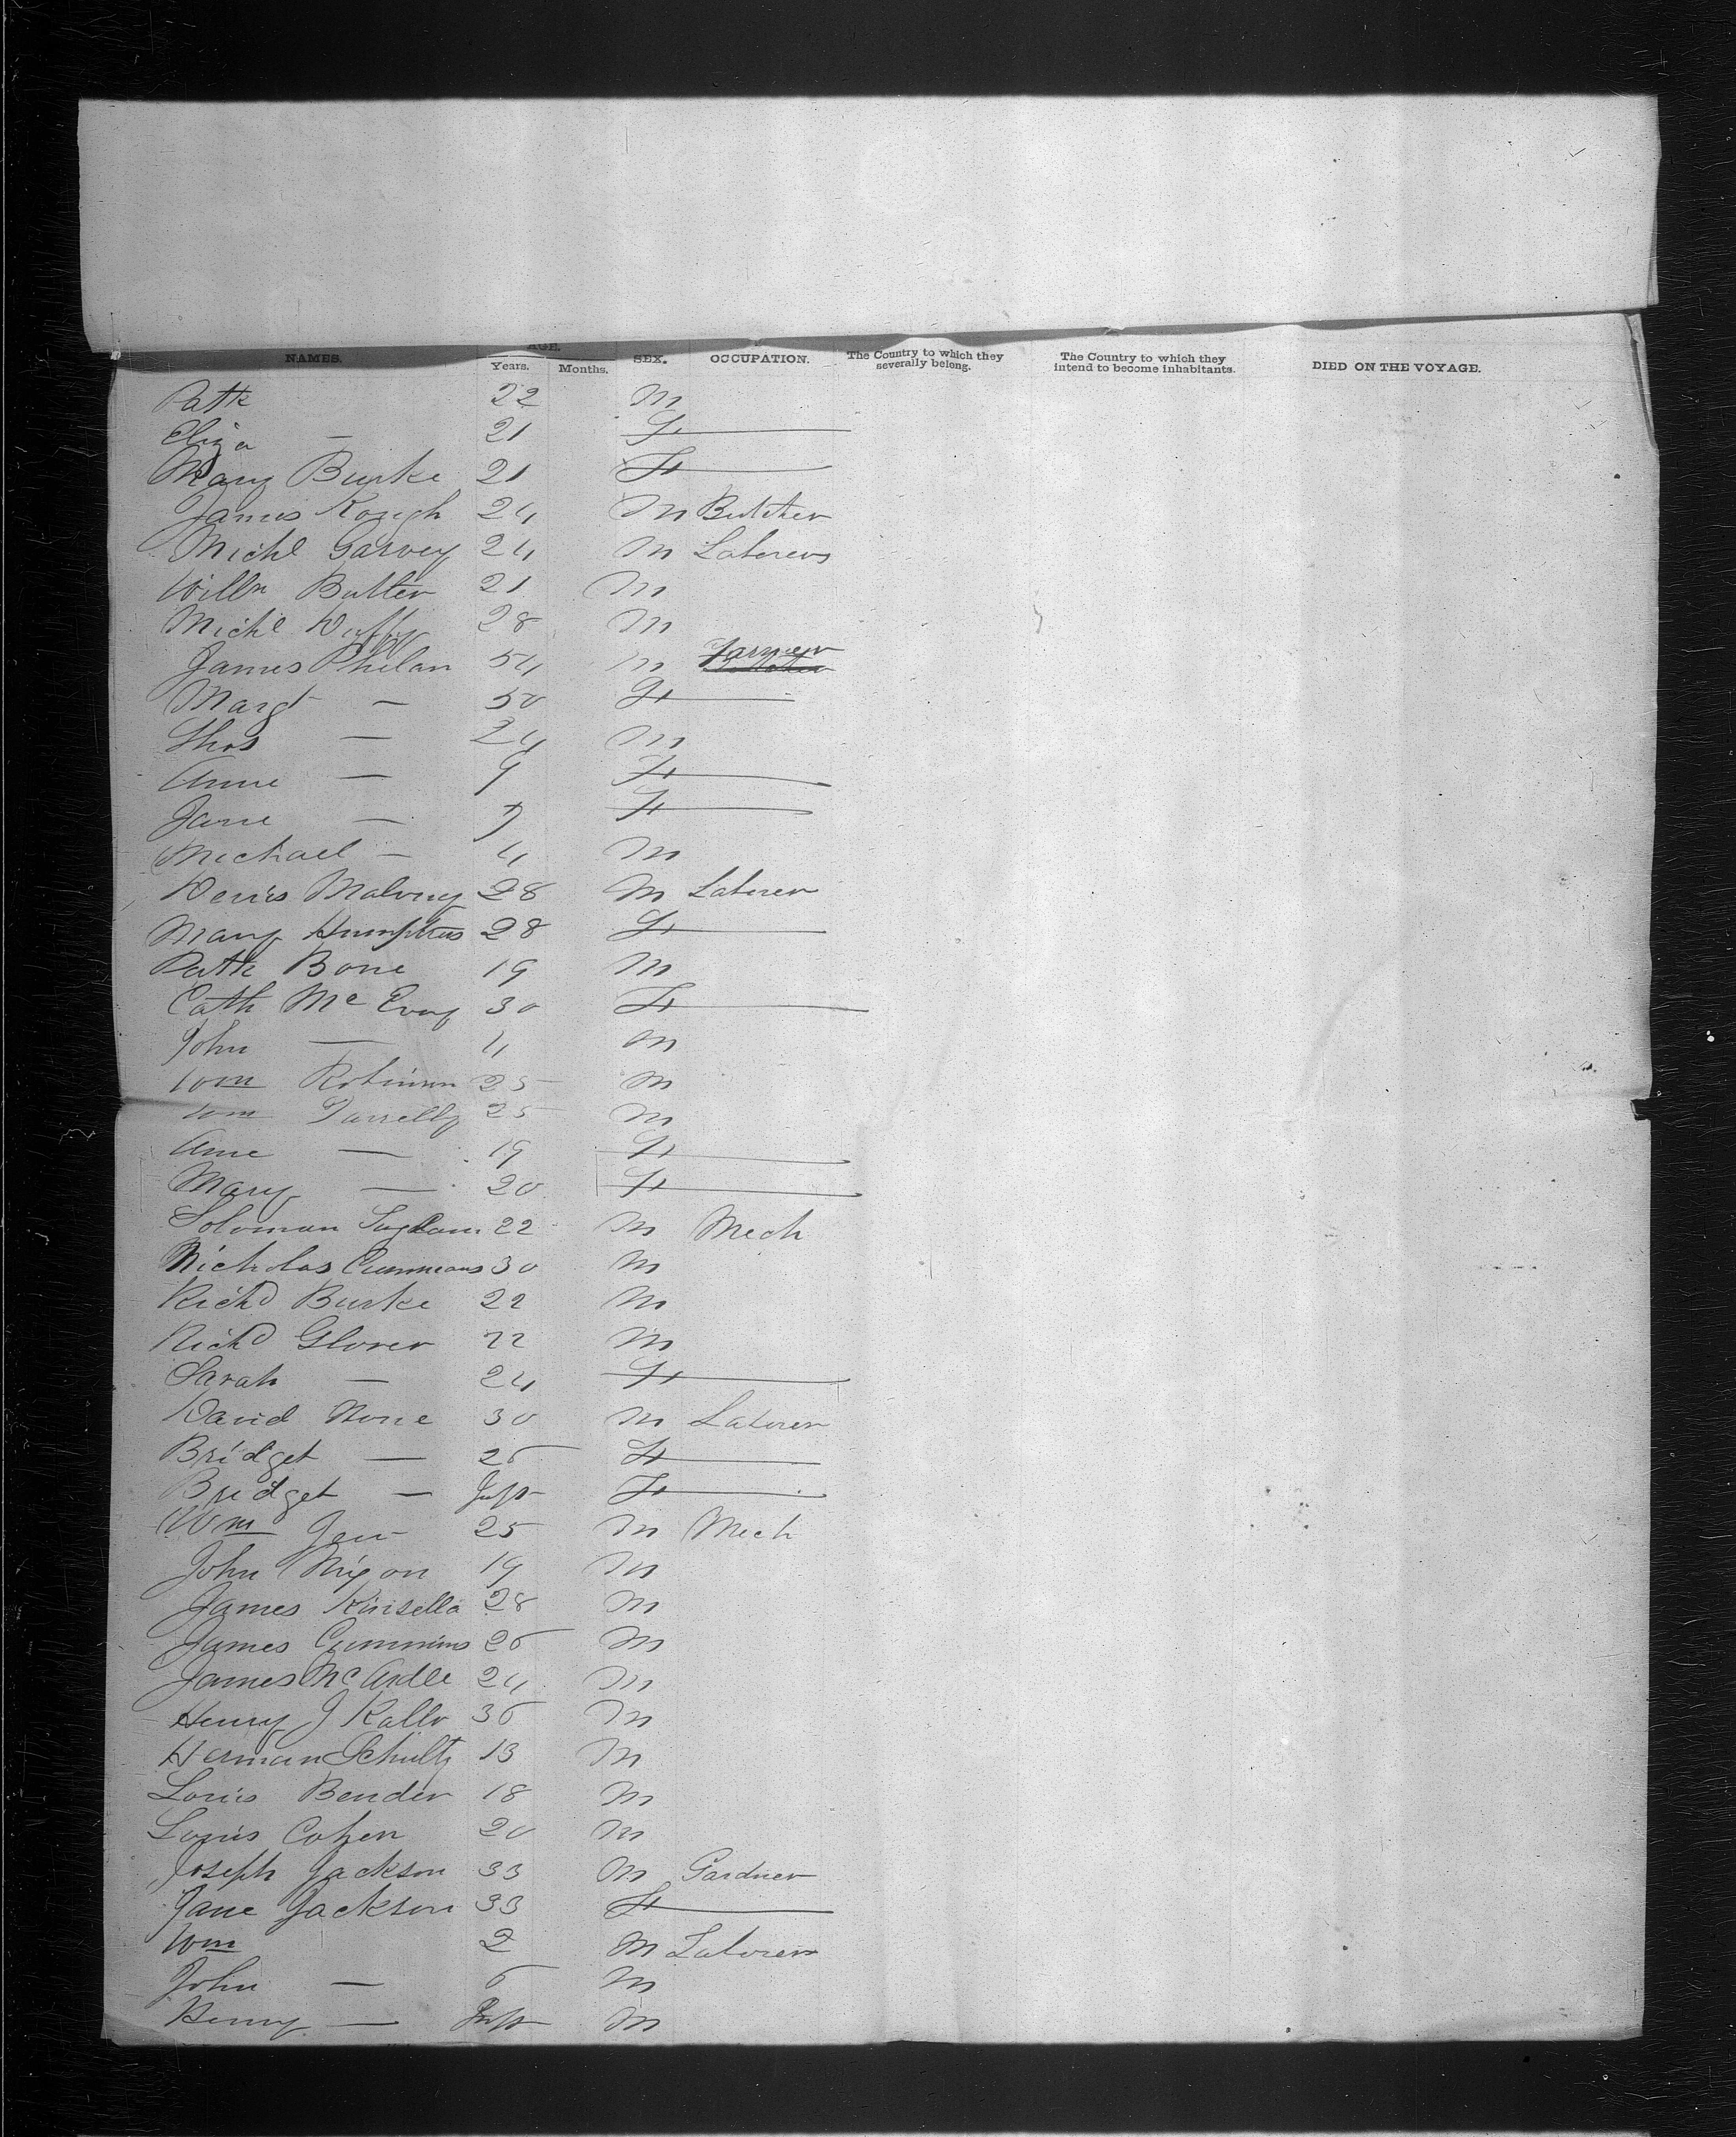 NAMES. AGE. SEX. OCCUPATION. The Country to which they severally belong. The Country to which they intend to become inhabitants. DIED ON THE VOYAGE.
Years. Months.
Patk 22 M
Eliza — 21 F
Mary Burke 21 F
James Kough 24 M Butcher
Michl Garvey 24 M Laborers
Willm Butler 21 M
Michl Duffy 28 M
James Phelan 54 M Farmer
Margt — 50 F
Thos — 24 M
Anne — 9 F
Jane — 7 F
Michael — 4 M
Denis Malvny 28 M Laborer
Mary Humphres 28 F
Patk Bone 19 M
Cath McEvoy 30 F
John — 4 M
Wm Robinson 25 M
Wm Farrelly 25 M
Anne — 19 F
Mary — 20 F
Soloman 22 M Mech
Nicholas Cummans 30 M
Richd Burke 22 M
Richd Glover 22 M
Sarah — 24 F
David Hone 30 M Laborer
Bridget — 25 F
Bridget — Inft F
Wm 25 M Mech
John Nixon 19 M
James Kinsella 28 M
James Cummins 25 M
James McArdle 24 M
Henry J Kallr 35 M
Herman Schultz 13 M
Louis Bender 18 M
Louis Cohen 20 M
Joseph Jackson 33 M Gardner
Jane Jackson 33 F
Wm 2 M Laborer
John — 5 M
Henry — Inft M